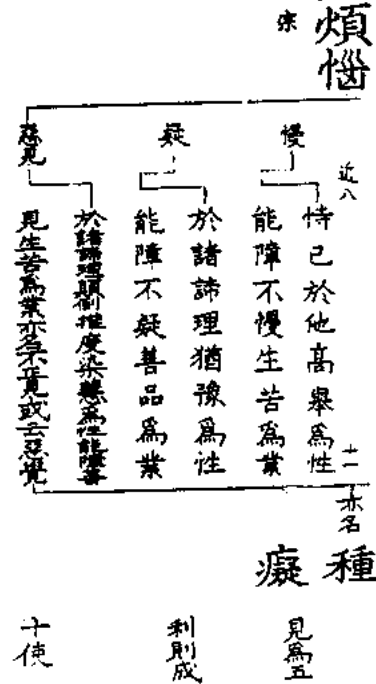 煩惱
慢
恃己於他高舉為性
能障不慢生苦為業
疑
於諸諦理猶豫為性
能障不疑善品為業
惡見
於諸諦理顛倒推度染慧為性能障善
見生苦為業亦名不正見或云惡覺
亦名
種
癡
見為五
利則成
十使